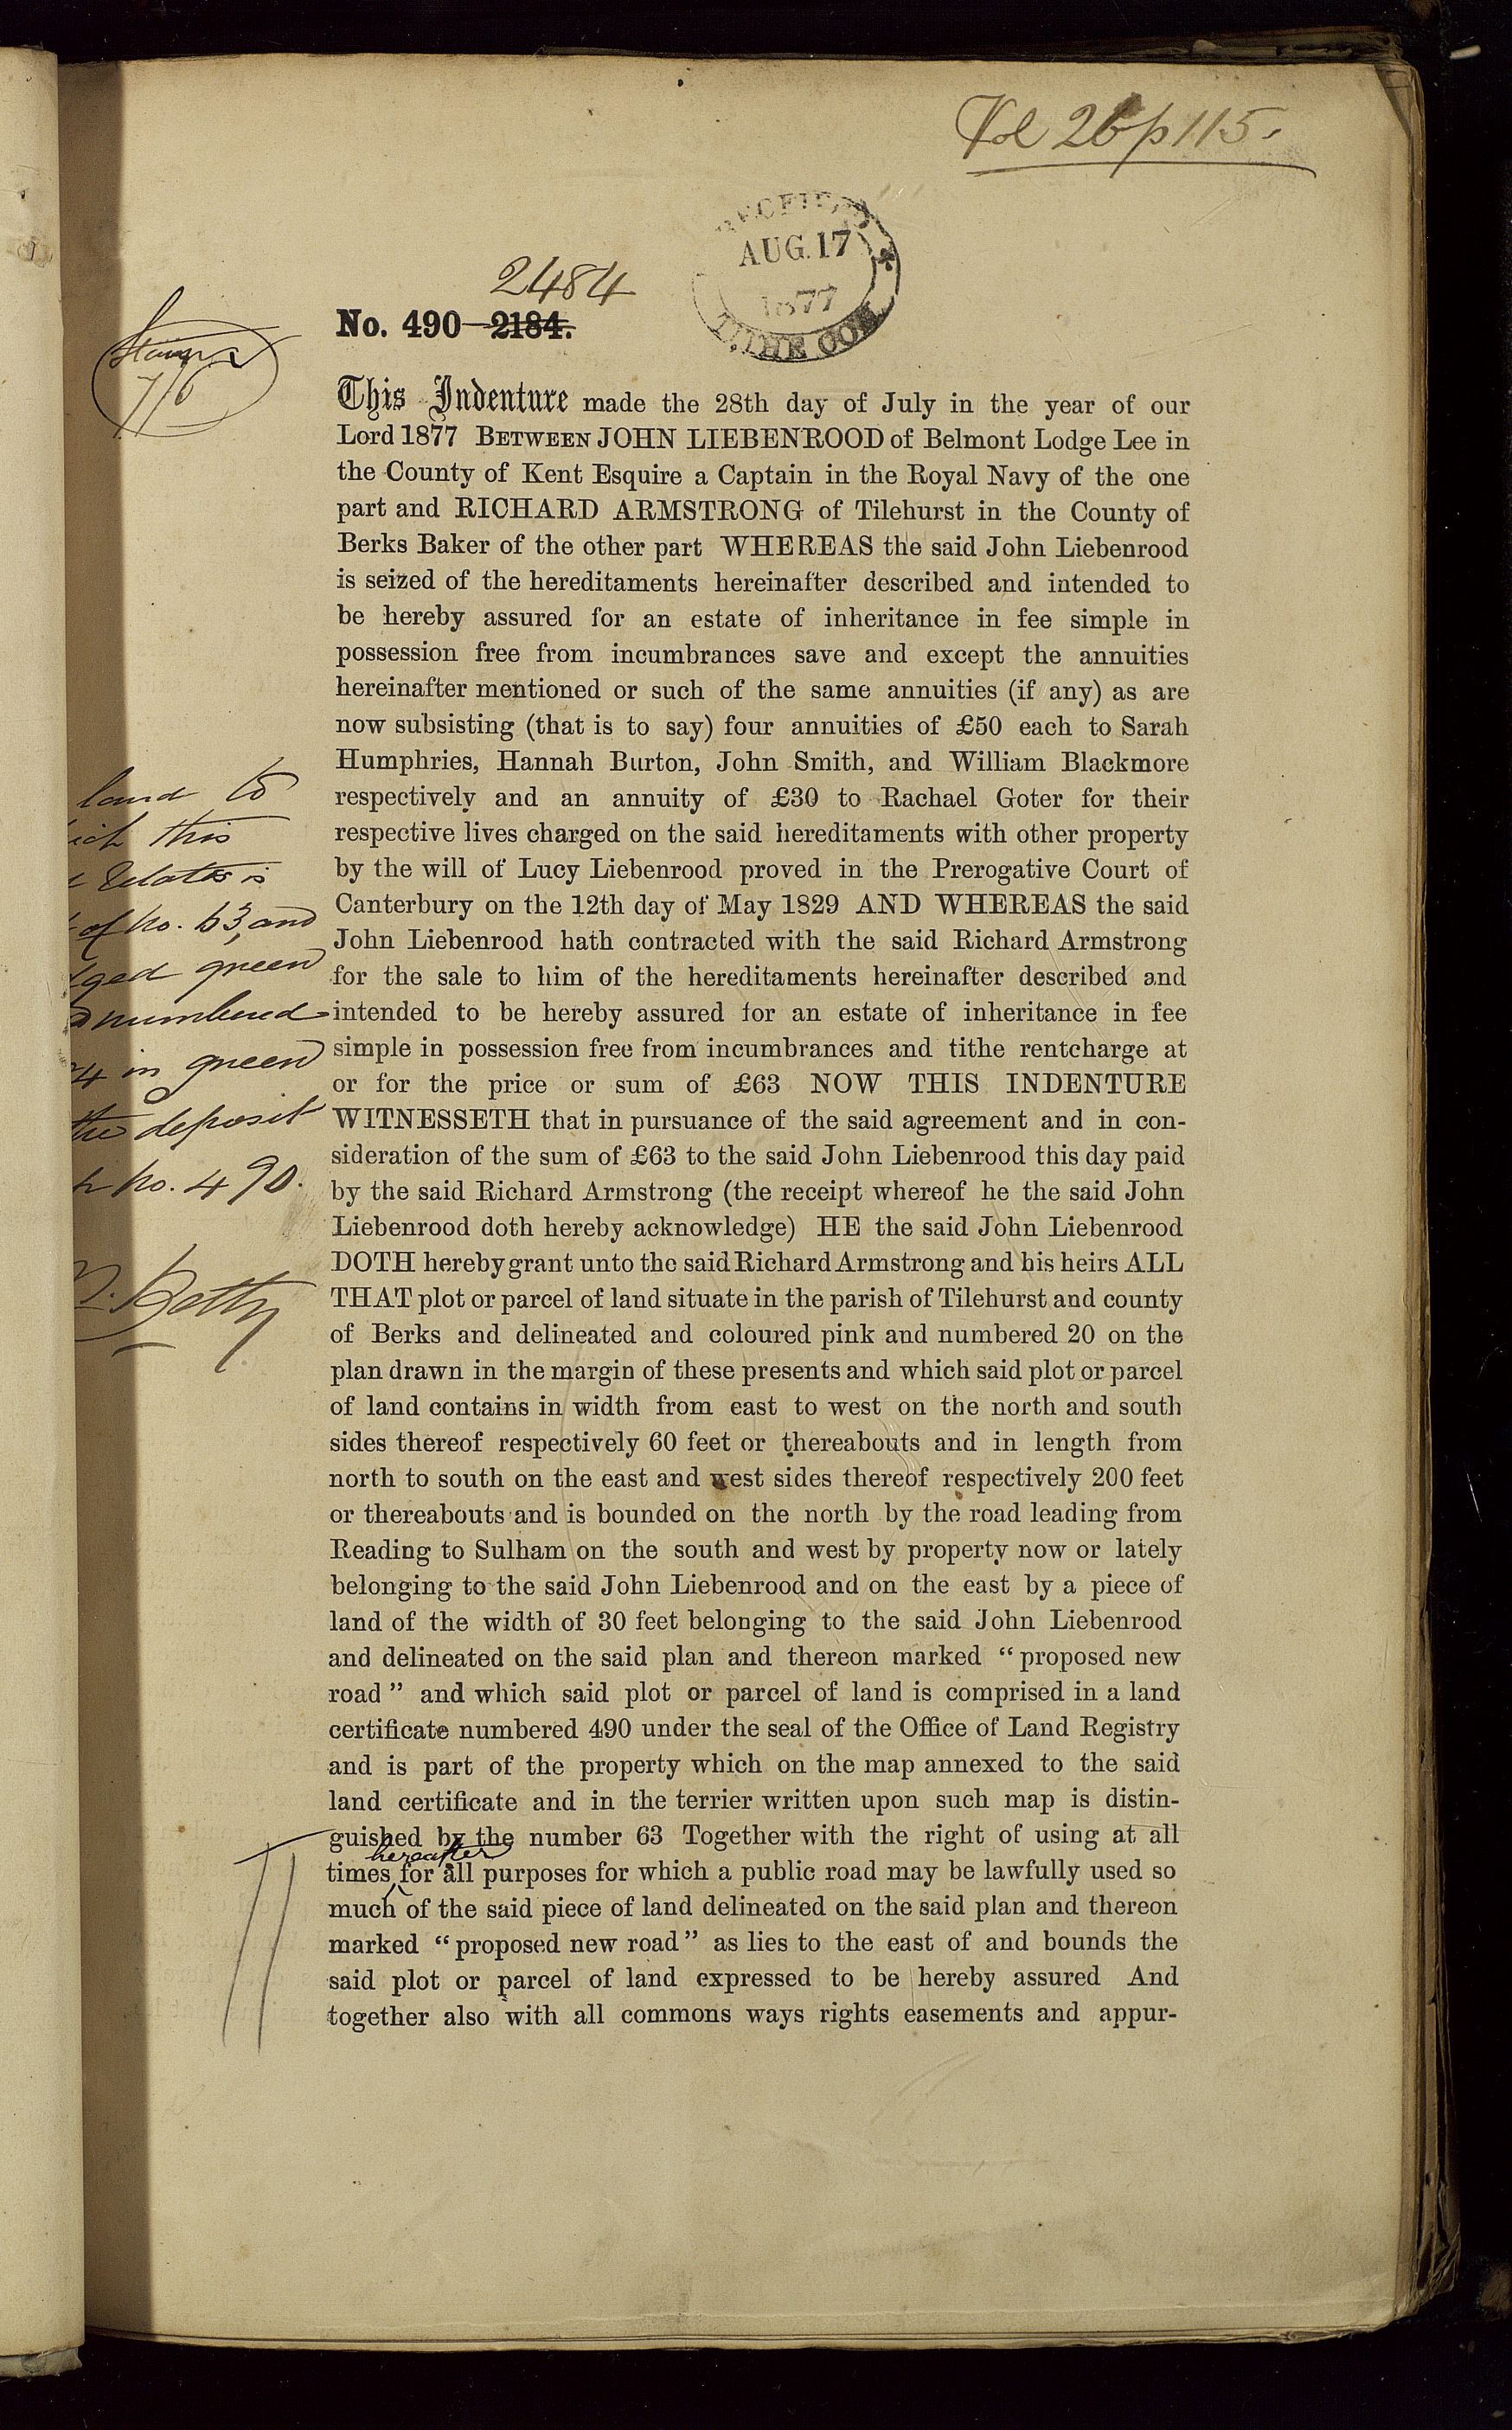 Vol 26 p 115.
RECEIVED
AUG. 17
1877
TITHE COM
2484
No. 490—2184.
Stamp
7/6
This Indenture made the 28th day of July in the year of our
Lord 1877 BETWEEN JOHN LIEBENROOD of Belmont Lodge Lee in
the County of Kent Esquire a Captain in the Royal Navy of the one
part and RICHARD ARMSTRONG of Tilehurst in the County of
Berks Baker of the other part WHEREAS the said John Liebenrood
is seized of the hereditaments hereinafter described and intended to
be hereby assured for an estate of inheritance in fee simple in
possession free from incumbrances save and except the annuities
hereinafter mentioned or such of the same annuities (if any) as are
now subsisting (that is to say) four annuities of £50 each to Sarah
Humphries, Hannah Burton, John Smith, and William Blackmore
respectively and an annuity of £30 to Rachael Goter for their
respective lives charged on the said hereditaments with other property
by the will of Lucy Liebenrood proved in the Prerogative Court of
Canterbury on the 12th day of May 1829 AND WHEREAS the said
John Liebenrood hath contracted with the said Richard Armstrong
for the sale to him of the hereditaments hereinafter described and
intended to be hereby assured for an estate of inheritance in fee
simple in possession free from incumbrances and tithe rentcharge at
or for the price or sum of £63 NOW THIS INDENTURE
WITNESSETH that in pursuance of the said agreement and in con-
sideration of the sum of £63 to the said John Liebenrood this day paid
by the said Richard Armstrong (the receipt whereof he the said John
Liebenrood doth hereby acknowledge) HE the said John Liebenrood
DOTH hereby grant unto the said Richard Armstrong and his heirs ALL
THAT plot or parcel of land situate in the parish of Tilehurst and county
of Berks and delineated and coloured pink and numbered 20 on the
plan drawn in the margin of these presents and which said plot or parcel
of land contains in width from east to west on the north and south
sides thereof respectively 60 feet or thereabouts and in length from
north to south on the east and west sides thereof respectively 200 feet
or thereabouts and is bounded on the north by the road leading from
Reading to Sulham on the south and west by property now or lately
belonging to the said John Liebenrood and on the east by a piece of
land of the width of 30 feet belonging to the said John Liebenrood
and delineated on the said plan and thereon marked “proposed new
road” and which said plot or parcel of land is comprised in a land
certificate numbered 490 under the seal of the Office of Land Registry
and is part of the property which on the map annexed to the said
land certificate and in the terrier written upon such map is distin-
guished by the number 63 Together with the right of using at all
hereafter
times for all purposes for which a public road may be lawfully used so
much of the said piece of land delineated on the said plan and thereon
marked “proposed new road” as lies to the east of and bounds the
said plot or parcel of land expressed to be hereby assured And
together also with all commons ways rights easements and appur-
land to
this
relates is
of No. 63, and
green
numbered
in green
the deposit
No. 490.